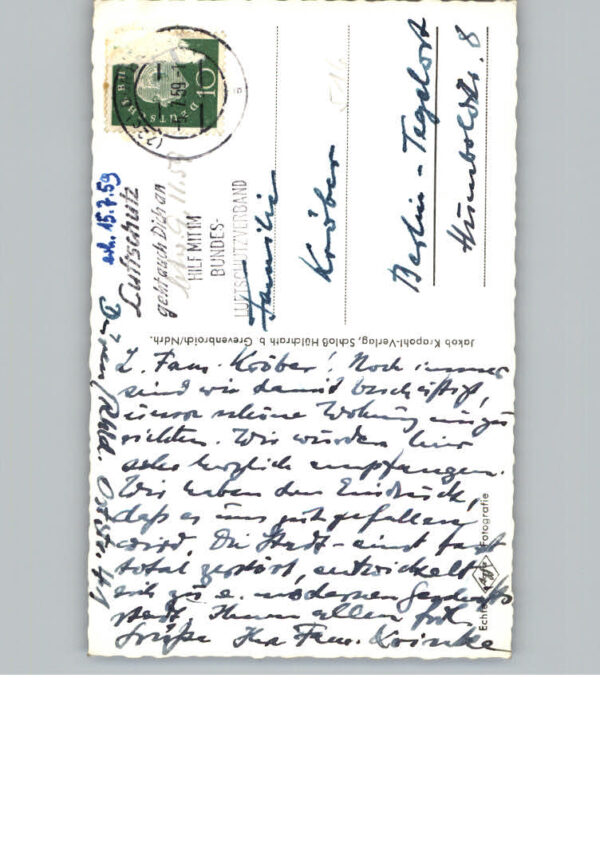 L. Fam. Kröber! Noch immer
sind wir damit beschäftigt,
unsere schöne Wohnung einzu
richten. Wir wurden hier
sehr herzlich empfangen.
Wir haben den Eindruck,
daß es uns gut gefallen
wird. Die Stadt - einst fast
total zerstört, entwickelt
sich zu e. modernen
stadt. Ihnen allen
Grüße Ihre Fam.
Düren/Rhld. Oststr. 41
erh. 15.7.59
Luftschutz
geht auch Dich an
HILF MIT IM
BUNDES-
LUFTSCHUTZVERBAND
10
DEUTSCHE BUNDESPOST
Familie
Kröber
Berlin - Tegelort
Humboldtstr. 8
Jakob Krapohl-Verlag, Schloß Hülchrath b Grevenbroich/Ndrh.
Echte Agfa Fotografie